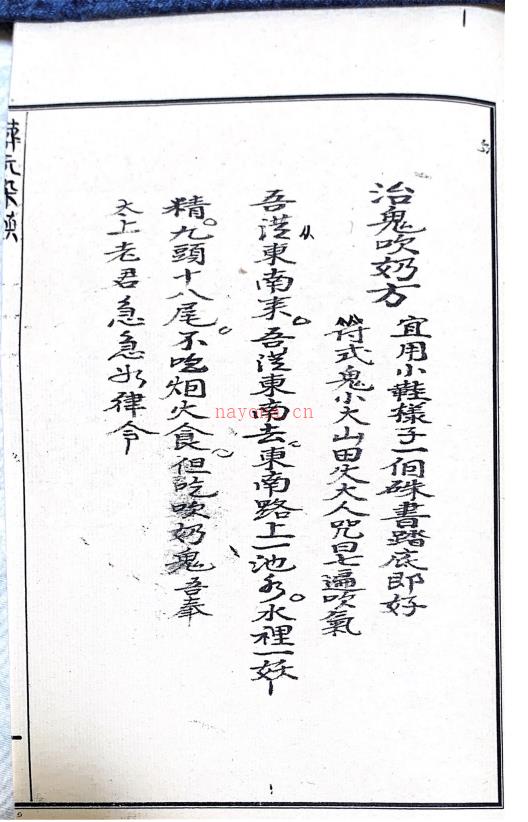 治鬼吹奶方
宜用小鞋樣子一個硃書踏底即好
符式鬼小大山田火大人咒曰七遍吹氣
吾從東南来吾從東南去東南路上一池水水裡一妖
精九頭十八尾不吃烟火食但吃吹奶鬼吾奉
太上老君急急如律令
nayona.cn